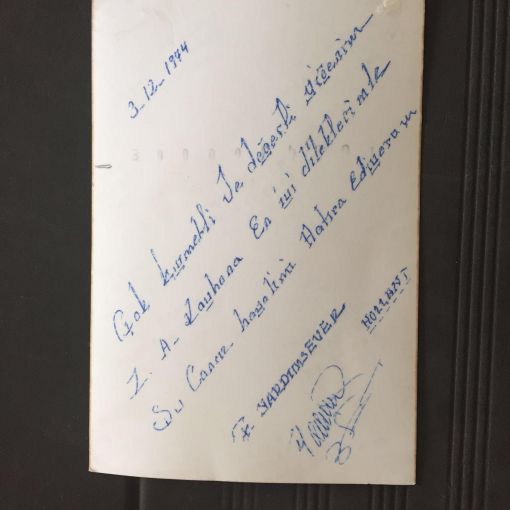 3_12_1974
Çok kıymetli ve değerli yiğenim
Z. A. En iyi dileklerimle
Şu Cansız hayalimi Hatıra Ediyorum
YARDIMSEVER
HOLLANT